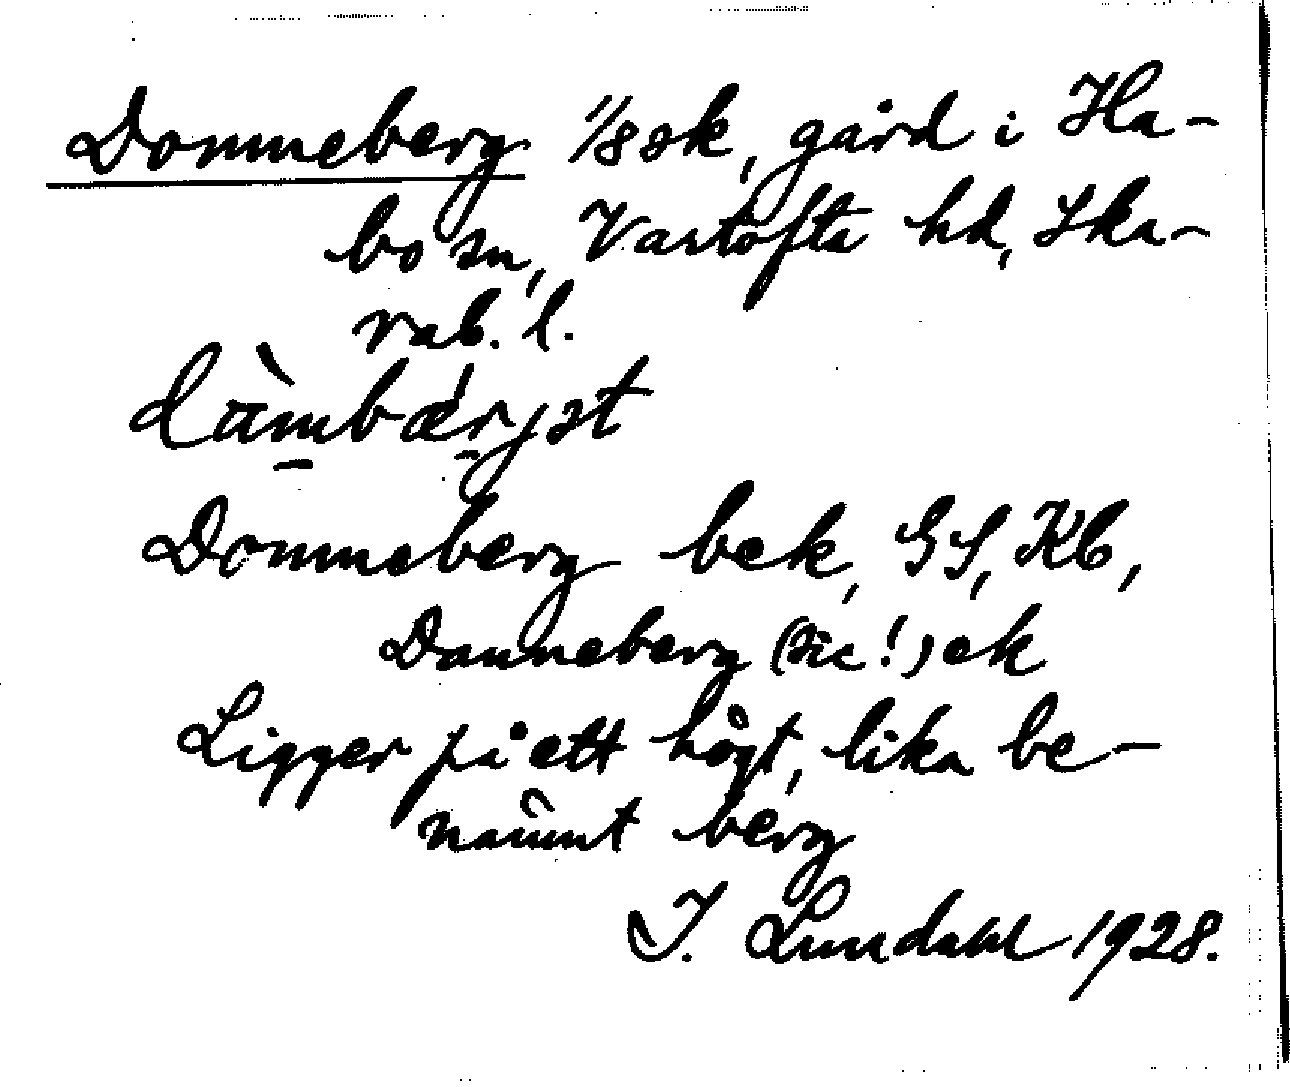 Domneberg 1/8 sk, gård i Ha-
bo sn, Vartofta hd, Ska-
rab. l.
dàmbærjət
Domneberg bek, GS, Kb,
Danneberg (sic!) ek
Ligger på ett högt, lika be-
nämnt berg
I. Lundahl 1928.